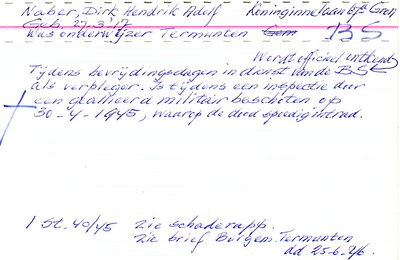 Naber, Dirk Hendrik Adolf Koninginnelaan 67a Gron.
Geb. 27.3.'17
Was onderwijzer Termunten Gem BS
Wordt officieel ontkend
Tijdens bevrijdingsdagen in dienst van de BS
als verpleger. Is tijdens een inspectie door
een geallieerd militair beschoten op
30-4-1945, waarop de dood spoedig intrad.
1 St. 40/45 zie schaderapp.
zie brief Burgem. Termunten
dd. 25-6-'46.